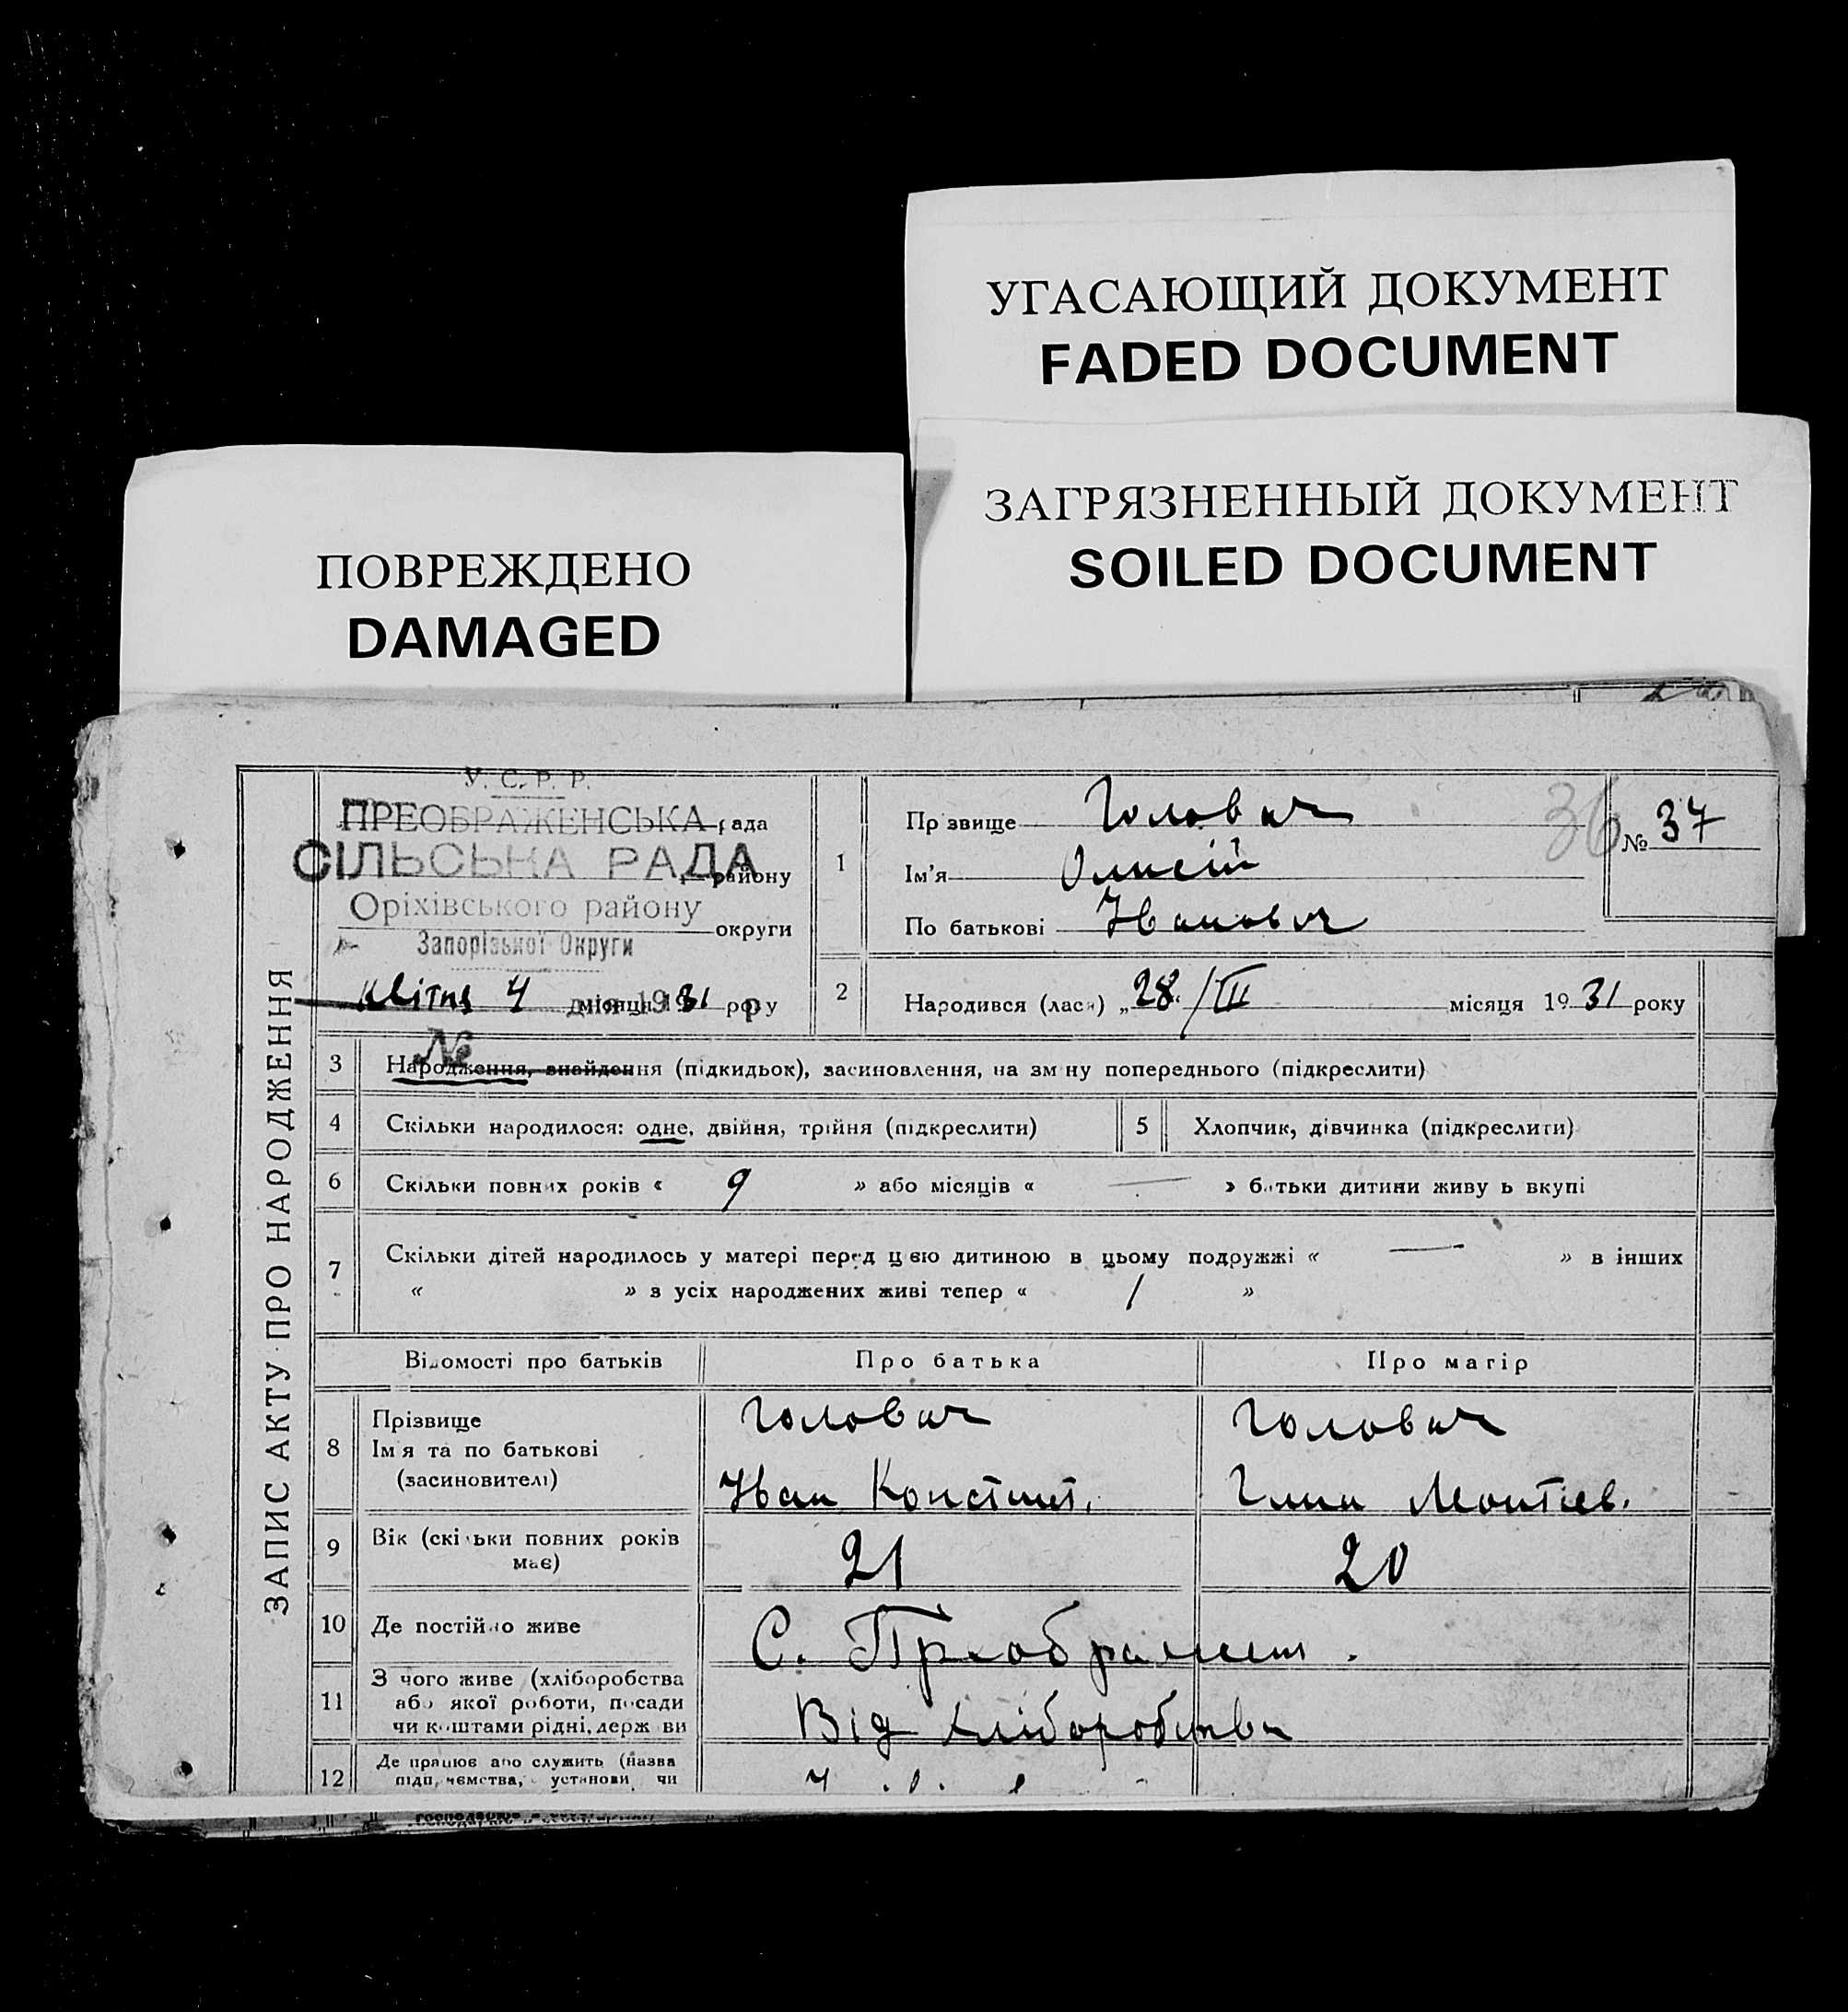 УГАСАЮЩИЙ ДОКУМЕНТ
FADED DOCUMENT
ЗАГРЯЗНЕННЫЙ ДОКУМЕНТ
SOILED DOCUMENT
ПОВРЕЖДЕНО
DAMAGED
ЗАПИС АКТУ ПРО НАРОДЖЕННЯ
У. С. Р. Р.
ПРЕОБРАЖЕНСЬКА рада
СІЛЬСЬКА РАДА
району
Оріхівського району
округи
Запорізької Округи
Квітня 4 місяця 1931 року
№
1
Пр звище Головач
Ім'я Олексій
По батькові Іванович
36
№ 37
2 Народився (лася) „28/III місяця 1931 року
3 Народження, знайдення (підкидьок), засиновлення, на зм ну попереднього (підкреслити)
4 Скільки народилося: одне, двійня, трійня (підкреслити)
5 Хлопчик, дівчинка (підкреслити)
6 Скільки повних років « 9 » або місяців « — » батьки дитини живу ь вкупі
7 Скільки дітей народилось у матері перед цією дитиною в цьому подружжі « — » в інших
« » з усіх народжених живі тепер « 1 »
Відомості про батьків Про батька Про матір
8 Прізвище
Ім'я та по батькові
(засиновителі)
Головач
Іван Констант.
Головач
Леонтіев.
9 Вік (скільки повних років
має)
21 20
10 Де постійно живе С. Преображен .
11 З чого живе (хліборобства
або якої роботи, посади
чи коштами рідні, держ ви
Від хліборобства
12 Де працює або служить (назва
підприємства, установи чи